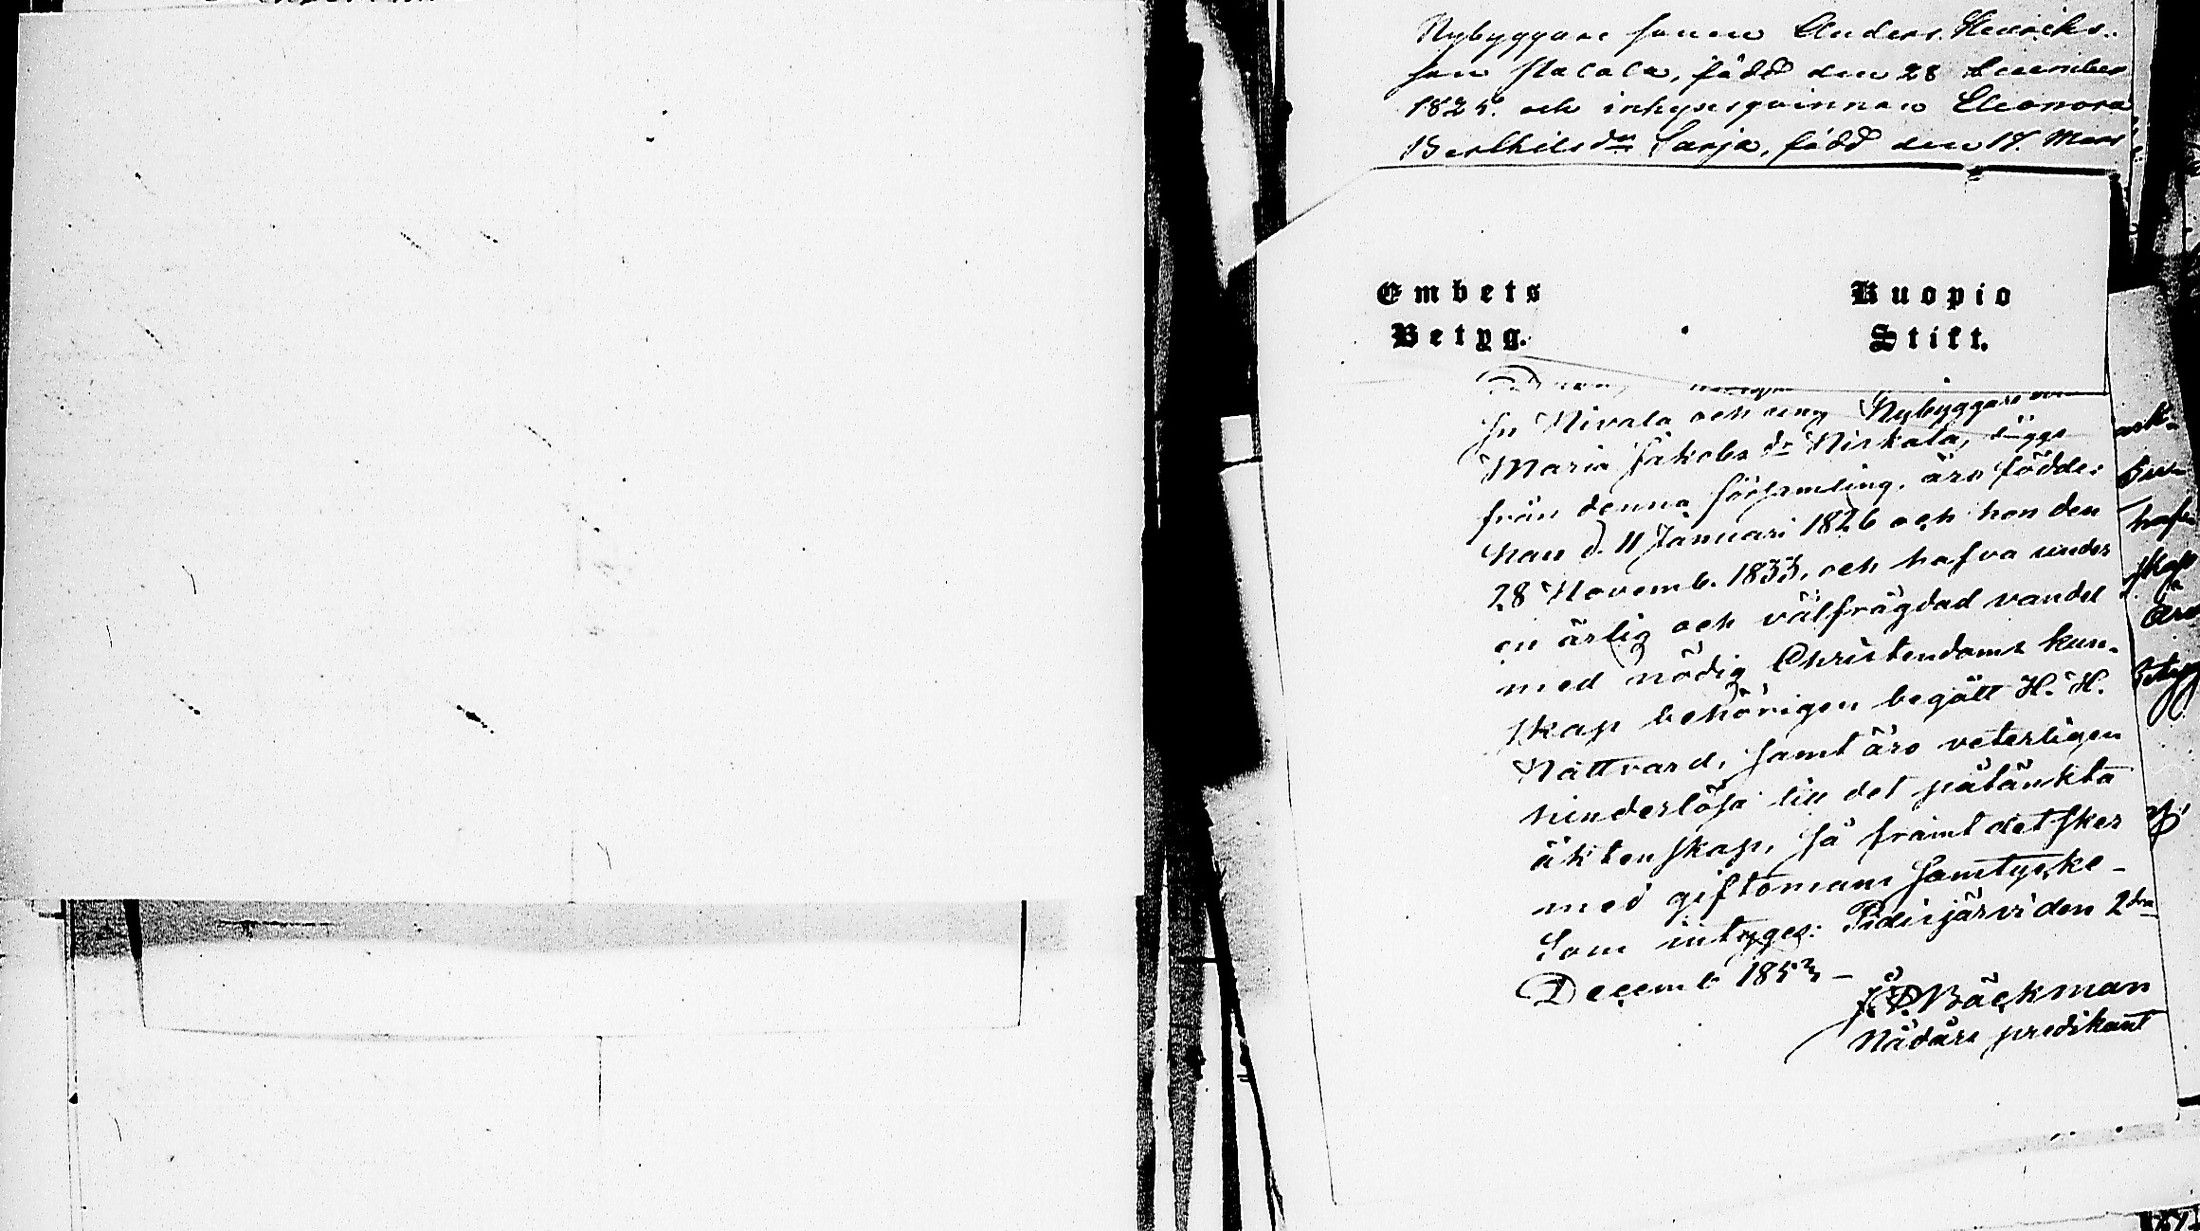 Nybyggare sonen Anders Henriks-
son Stacala, född den 28 December
1825. och inhysesqvinnan Eleonora
Berthilsdr Sarja, född den 17. Mars
Embets
Betyg.
Kuopio
Stift.
fr Nivala och
Maria Jakobs dr Niskala,
från denna församling, äro födde:
han d. 11 Januari 1826 och hon den
28 Novemb. 1833, och hafva under
en ärlig och välfrägdad vandel
med nödig Christendoms kun-
skap behörigen begått H. H.
Nattvard, samt äro veterligen
hinderlösa till det påtänkta
äktenskap, så framt det sker
med giftomans samtycke -
Som intyges: Pidisjärvi den 2dra
Decemb 1853 -
Bäckman
Nådårs predikant